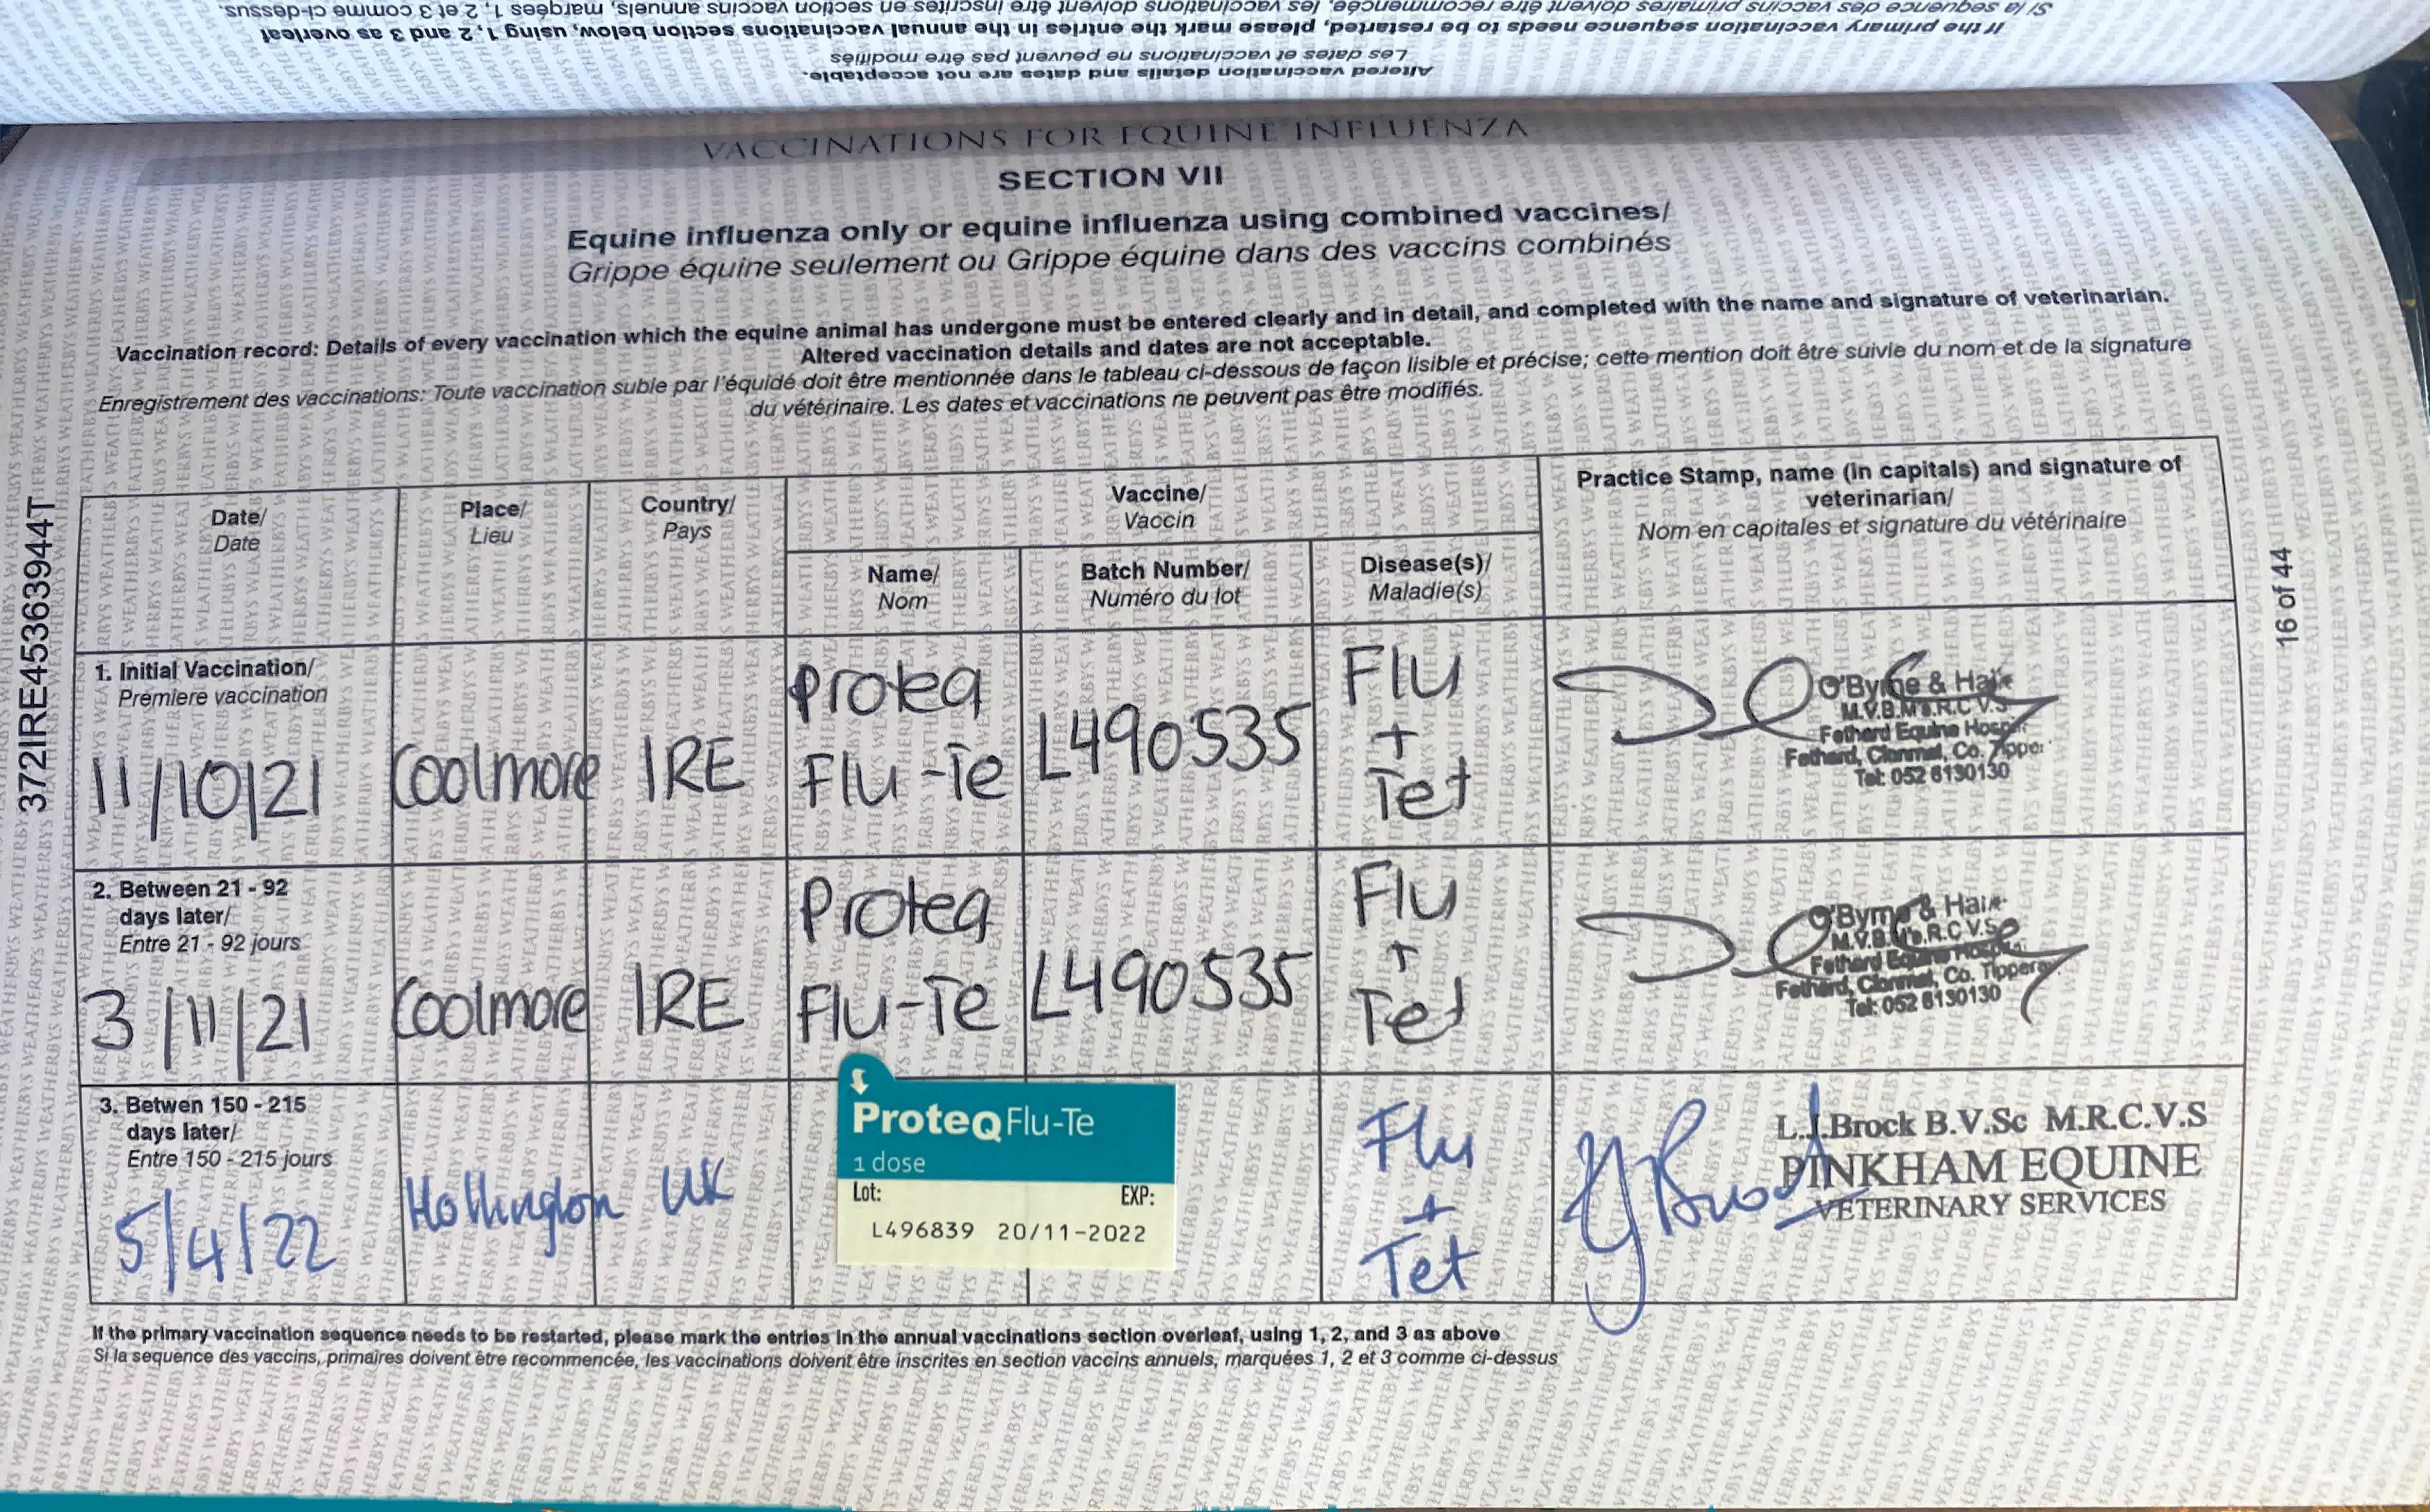 Si la sequence des vaccins primaires doivent être recommencée, les vaccinations doivent être inscrites en section vaccins annuels, marqées 1, 2 et 3 comme ci-dessus.
If the primary vaccination sequence needs to be restarted, please mark the entries in the annual vaccinations section below, using 1, 2 and 3 as overleaf
Les dates et vaccinations ne peuvent pas être modifiés
Altered vaccination details and dates are not acceptable.
VACCINATIONS FOR EQUINE INFLUENZA
SECTION VII
Equine influenza only or equine influenza using combined vaccines/
Grippe équine seulement ou Grippe équine dans des vaccins combinés
Vaccination record: Details of every vaccination which the equine animal has undergone must be entered clearly and in detail, and completed with the name and signature of veterinarian.
Altered vaccination details and dates are not acceptable.
Enregistrement des vaccinations: Toute vaccination subie par l'équidé doit être mentionnée dans le tableau ci-dessous de façon lisible et précise; cette mention doit être suivie du nom et de la signature
du vétérinaire. Les dates et vaccinations ne peuvent pas être modifiés.
372IRE45363944T
16 of 44
Date/
Date
Place/
Lieu
Country/
Pays
Vaccine/
Vaccin
Name/
Nom
Batch Number/
Numéro du lot
Disease(s)/
Maladie(s)
Practice Stamp, name (in capitals) and signature of
veterinarian/
Nom en capitales et signature du vétérinaire
1. Initial Vaccination/
Premiere vaccination
11/10/21
Coolmore
IRE
Proteq
Flu-Te
L490535
Flu
+
Tet
O'Byrne & Hal
M.V.B. M.R.C.V.S
Fethard Equine Hosp
Fethard, Clonmel, Co. Tipper
Tel: 052 6130130
2. Between 21 - 92
days later/
Entre 21 - 92 jours
3/11/21
Coolmore
IRE
Proteq
Flu-Te
L490535
Flu
+
Tet
O'Byrne & Hal
M.V.B. M.R.C.V.S
Fethard Equine Hosp
Fethard, Clonmel, Co. Tippera
Tel: 052 6130130
3. Betwen 150 - 215
days later/
Entre 150 - 215 jours
5/4/22
Hollington
UK
ProteQ Flu-Te
1 dose
Lot: EXP:
L496839 20/11-2022
Flu
+
Tet
L.J.Brock B.V.Sc M.R.C.V.S
PINKHAM EQUINE
VETERINARY SERVICES
If the primary vaccination sequence needs to be restarted, please mark the entries in the annual vaccinations section overleaf, using 1, 2, and 3 as above
Si la sequence des vaccins, primaires doivent être recommencée, les vaccinations doivent être inscrites en section vaccins annuels, marquées 1, 2 et 3 comme ci-dessus